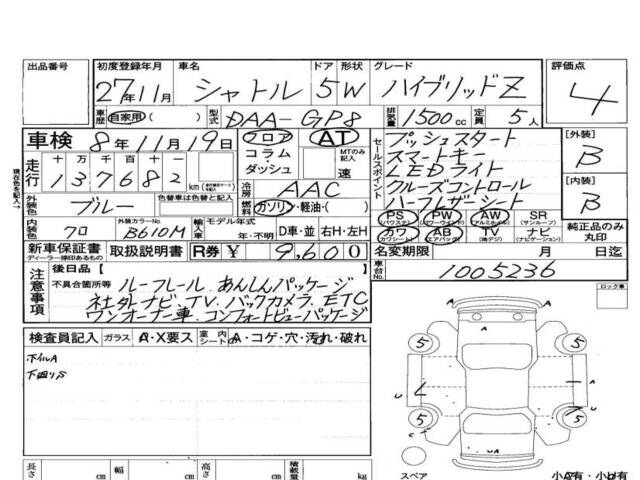 出品番号 初度登録年月 車名 ドア 形状 グレード 評価点
27年11月 シャトル 5 W ハイブリッドZ 4
車歴 自家用 ( ) 型式 DAA-GP8 排気量 1500cc 定員 5人
車検 8年11月19日 フロア AT セールスポイント プッシュスタート [外装]
走行 十万 万 千 百 十 一 コラム・ダッシュ MTのみ記入 速 スマートキー B
137682 km 冷房 AAC LEDライト [内装]
現在色を記入→ 外装色 色替車は色替と記入 ブルー 燃料 ガソリン・軽油・( ) クルーズコントロール B
ハーフレザーシート
内装色 クロ 外装カラーNo. B610M 輸入車 モデル年式 年・不明 D車・並 右H・左H PS (パワステ) PW (パワーウィンド) AW (アルミホイール) SR (サンルーフ) 純正品のみ丸印
カワ (カワシート) AB (エアバッグ) TV (地デジ) ナビ (ナビゲーション)
新車保証書 ディーラー捺印あるもの 取扱説明書 R券 ¥ 9,600 名変期限 月 日迄
注意事項 後日品 [ ] 車台No. 1005236
不具合箇所等 ルーフレール あんしんパッケージ ロック車
社外ナビ、TV、バックカメラ、ETC
ワンオーナー車 コンフォートビューパッケージ
検査員記入 ガラス A・X要ス 室内シート A・コゲ・穴・汚れ・破れ
ホイルA
下回りS
A
5 5
A
U
L
5 5
U
U A
A
スペア 小A有・小U有
長さ cm 幅 cm 高さ cm 積載量 kg